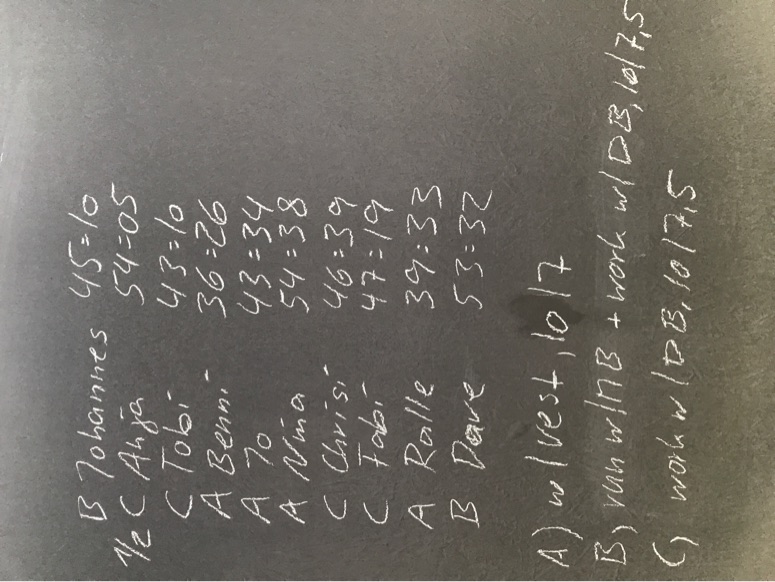 B Johannes 45:10
1/2 C Anja 54:05
C Tobi 43:10
A Benni 36:26
A Jo 43:34
A Nina 54:38
C Chrisi 46:39
C Fabi 47:19
A Ralle 39:33
B Dave 53:32
A) w/vest, 10/7
B) run w/MB + work w/DB, 10/7,5
C) work w/DB, 10/7,5